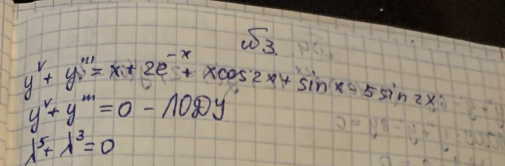 №3.
y^v + y^m = x + 2e^-x + x cos 2x + sin x - 5 sin 2x
y^v + y^m = 0 - ЛОДУ
λ^5 + λ^3 = 0